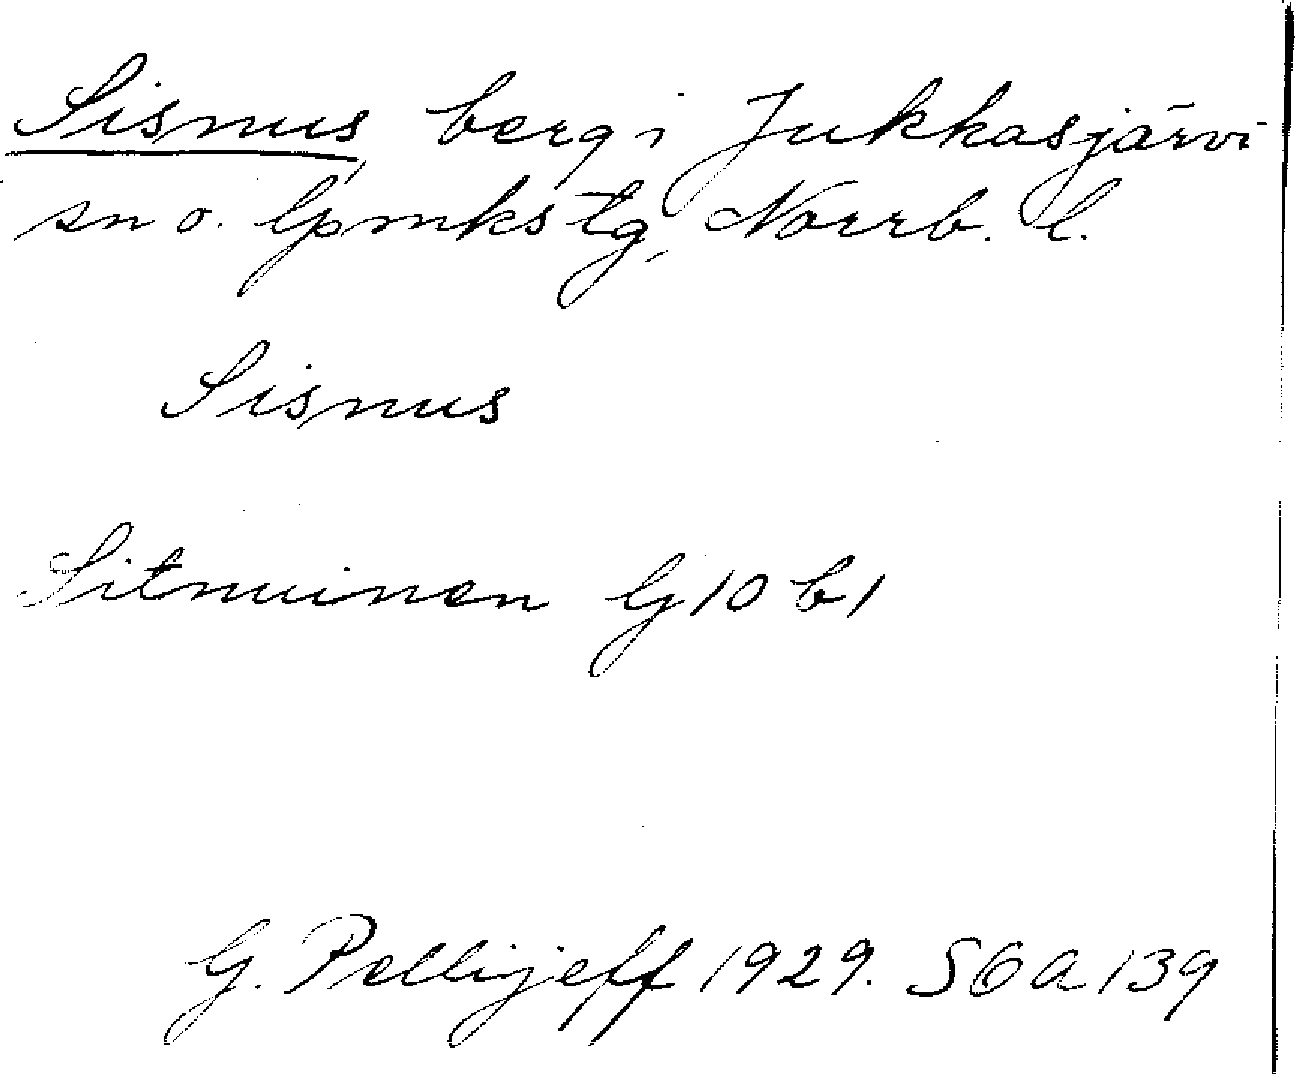 Sisnus, berg i Jukkasjärvi
sn o. lpmkstg, Norrb. l.
Sisnus
Sitnuinen G 10 b 1
G. Pellijeff 1929. SOA 139